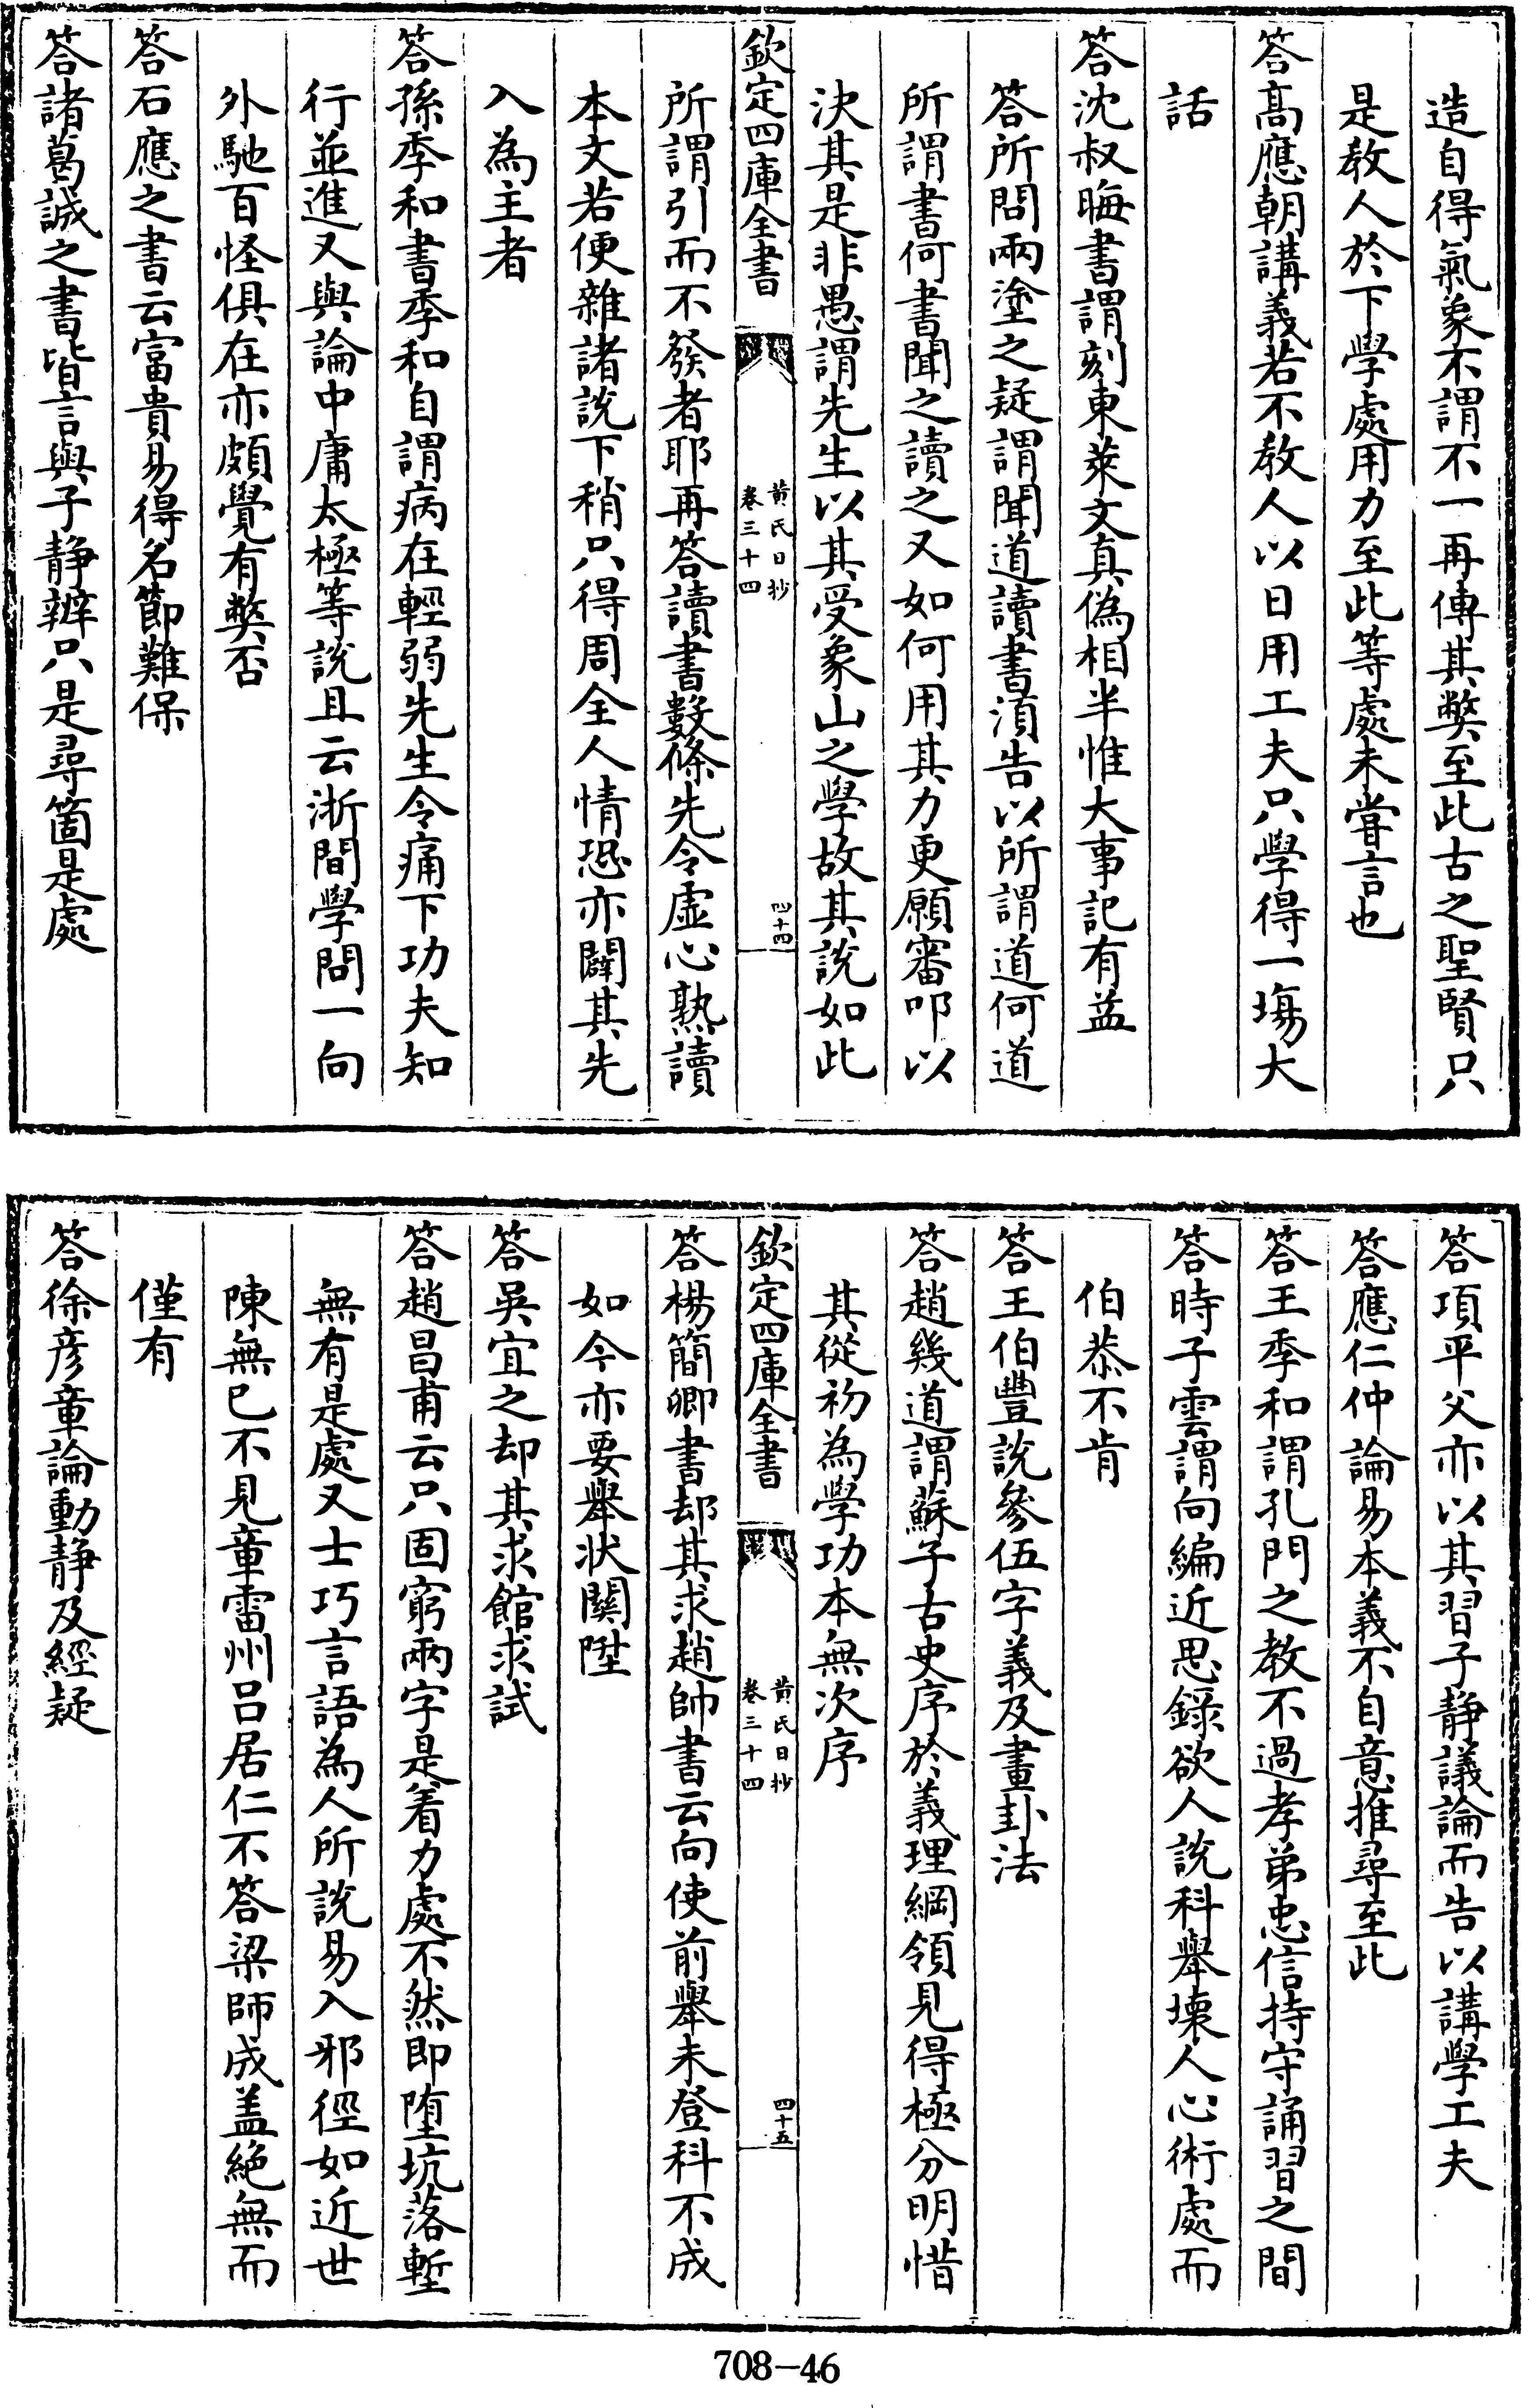 造自得氣象不謂不一再傳其弊至此古之聖賢只
是教人於下學處用力至此等處未嘗言也
答髙應朝講義若不教人以日用工夫只學得一塲大
話
答沈叔晦書謂刻東萊文真偽相半惟大事記有益
答所問兩塗之疑謂聞道讀書湏告以所謂道何道
所謂書何書聞之讀之又如何用其力更願審叩以
決其是非愚謂先生以其受象山之學故其説如此
欽定四庫全書
黄氏日抄
卷三十四
四十四
所謂引而不發者耶再答讀書數條先令虚心熟讀
本文若便雜諸説下稍只得周全人情恐亦闢其先
入為主者
答孫季和書季和自謂病在輕弱先生令痛下功夫知
行並進又與論中庸太極等説且云浙間學問一向
外馳百怪俱在亦頗覺有弊否
答石應之書云富貴易得名節難保
答諸葛誠之書皆言與子静辨只是尋箇是處
答項平父亦以其習子静議論而告以講學工夫
答應仁仲論易本義不自意推尋至此
答王季和謂孔門之教不過孝弟忠信持守誦習之間
答時子雲謂向編近思錄欲人説科舉壊人心術處而
伯恭不肯
答王伯豐説參伍字義及畫卦法
答趙幾道謂蘇子古史序於義理綱領見得極分明惜
其從初為學功本無次序
欽定四庫全書
黄氏日抄
卷三十四
四十五
答楊簡卿書却其求趙帥書云向使前舉未登科不成
如今亦要舉状關陞
答吳宜之却其求館求試
答趙昌甫云只固窮兩字是着力處不然即堕坑落塹
無有是處又士巧言語為人所説易入邪徑如近世
陳無已不見章雷州吕居仁不答梁師成盖絶無而
僅有
答徐彦章論動静及經疑
708-46